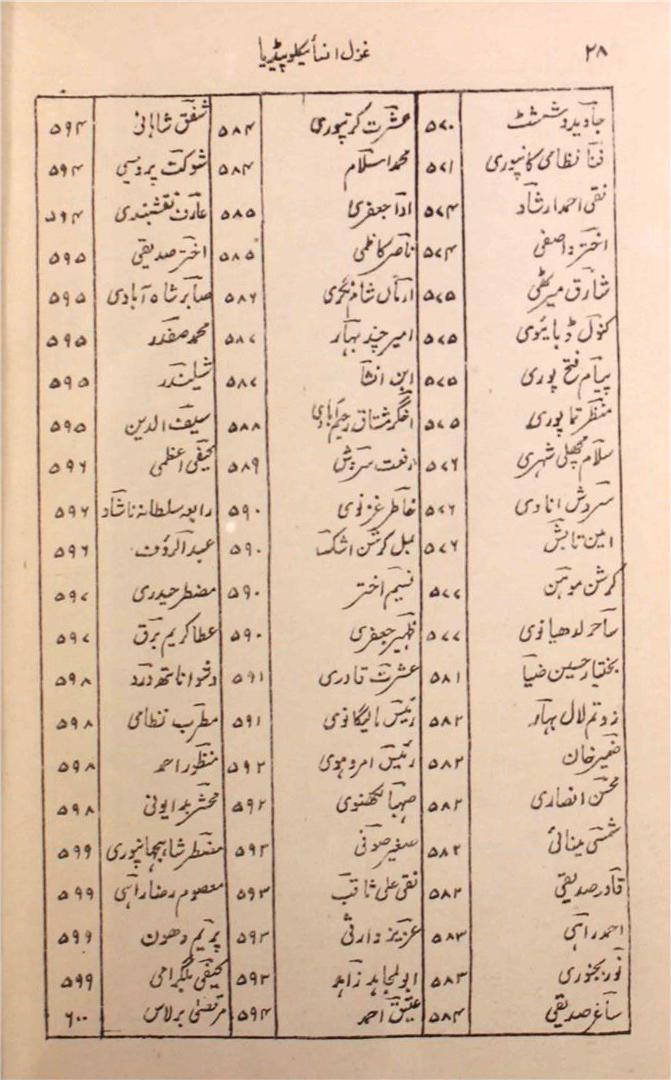 ۲۸ غزل انسائیکلوپیڈیا
جاوید وششٹ ۵۷۰ عشرت کرتپوری ۵۸۴ شفق شاہانی ۵۹۴
فنا نظامی کانپوری ۵۷۱ محمد اسلام ۵۸۴ شوکت پردیسی ۵۹۴
نقی احمد ارشاد ۵۷۴ ادا جعفری ۵۸۵ عارف نقشبندی ۵۹۴
اختر واصفی ۵۷۴ ناصر کاظمی ۵۸۵ اختر صدیقی ۵۹۵
شارق میرٹھی ۵۷۵ ارماں شام نگری ۵۸۶ صابر شاہ آبادی ۵۹۵
کنول ڈبائیوی ۵۷۵ امیر چند بہار ۵۸۷ محمد صفدر ۵۹۵
پیام فتح پوری ۵۷۵ ابن انشا ۵۸۷ شیلندر ۵۹۵
منظر تماپوری ۵۷۵ افگر مشتاق رحیم آبادی ۵۸۸ سیف الدین ۵۹۵
سلام مچھلی شہری ۵۷۶ رفعت سروش ۵۸۹ کیفی اعظمی ۵۹۶
سروش اناوی ۵۷۶ خاطر غزنوی ۵۹۰ رابعہ سلطانہ ناشاد ۵۹۶
امین تابش ۵۷۶ بمل کرشن اشک ۵۹۰ عبدالرؤف ۵۹۶
کرشن موہن ۵۷۷ نسیم اختر ۵۹۰ مضطر حیدری ۵۹۷
ساحر لدھیانوی ۵۷۷ ظہیر جعفری ۵۹۰ عطا کریم برق ۵۹۷
بختیار حسین ضیا ۵۸۱ عشرت قادری ۵۹۱ وشوا ناتھ درد ۵۹۸
زوتم لال بہار ۵۸۲ رئیس مالیگانوی ۵۹۱ مطرب نظامی ۵۹۸
ضمیر خان ۵۸۲ رئیس امروہوی ۵۹۲ منظور احمد ۵۹۸
محسن انصاری ۵۸۲ صہبا لکھنوی ۵۹۲ محشر بدایونی ۵۹۸
شمسی مینائی ۵۸۲ صغیر صوفی ۵۹۲ مضطر شاہجہانپوری ۵۹۹
قادر صدیقی ۵۸۳ نقی علی ثاقب ۵۹۳ معصوم رضا راہی ۵۹۹
احمد راہی ۵۸۳ عزیز وارثی ۵۹۳ پریم دھون ۵۹۹
نور بجنوری ۵۸۳ ابوالمجاہد زاہد ۵۹۳ کیفی بلگرامی ۵۹۹
ساغر صدیقی ۵۸۴ عتیق احمد ۵۹۴ مرتضیٰ برلاس ۶۰۰